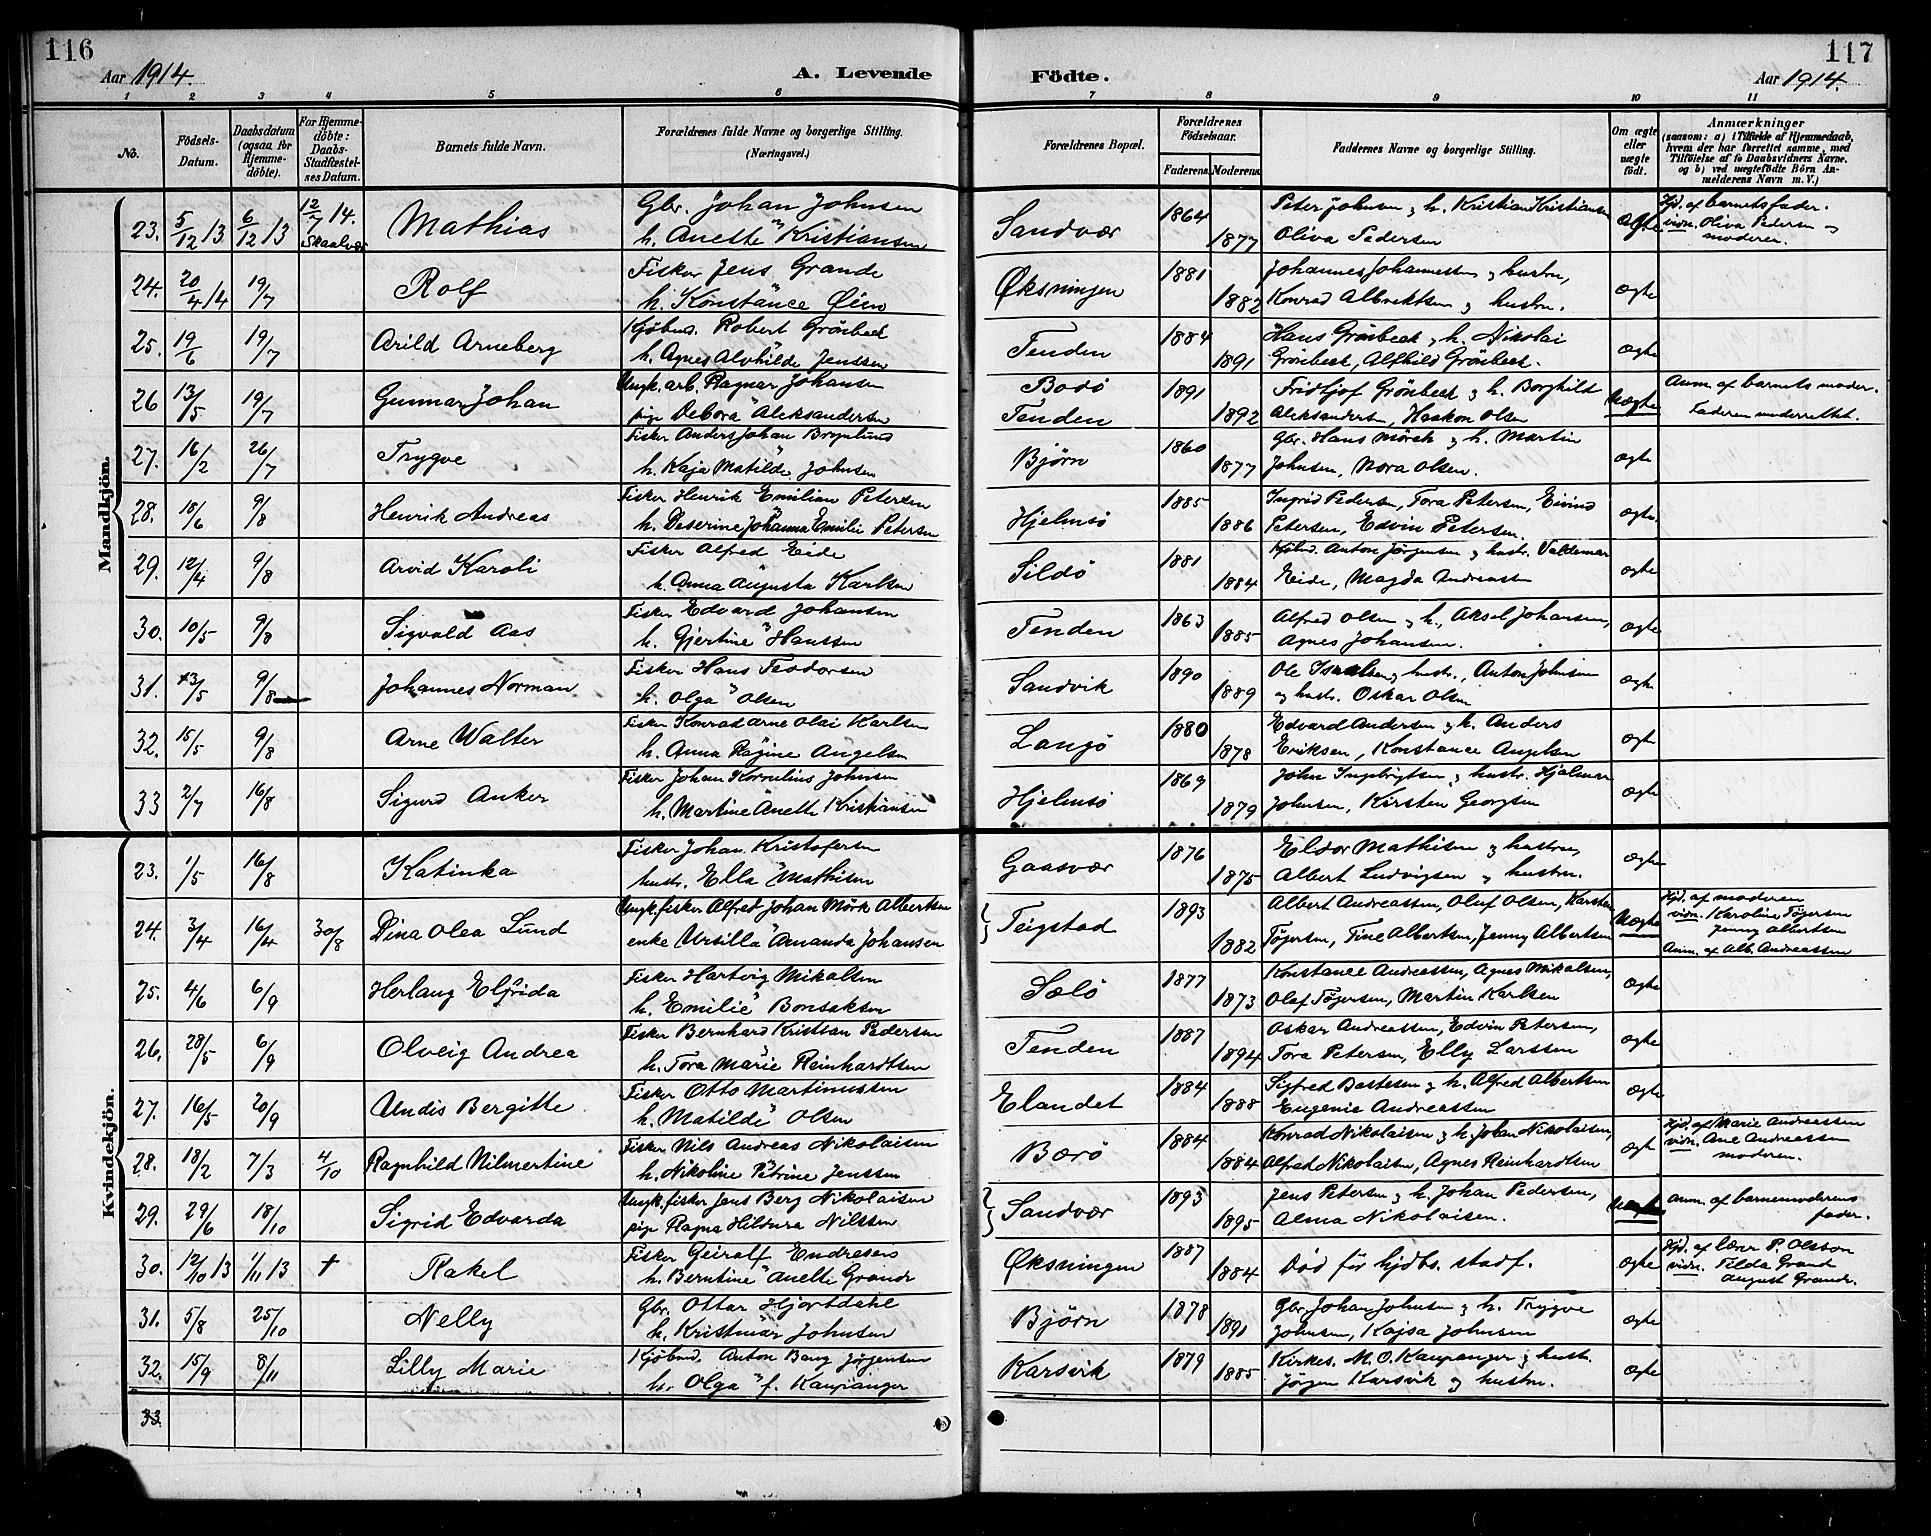 116
117
Aar 1914.
A. Levende
Födte.
Aar 1914.
1 2 3 4 5 6 7 8 9 10 11
No.
Födsels-
Datum.
Daabsdatum
(ogsaa for
Hjemme-
döbte).
For Hjemme-
döbte:
Daabs-
Stadfæstel-
ses Datum.
Barnets fulde Navn.
Forældrenes fulde Navne og borgerlige Stilling.
(Næringsvei.)
Forældrenes Bopæl.
Forældrenes
Födselsaar.
Faderens. Moderens.
Faddernes Navne og borgerlige Stilling.
Om ægte
eller
uægte
födt.
Anmærkninger
(saasom: a) i Tilfælde af Hjemmedaab,
hvem der har forrettet samme, med
Tilföielse af to Daabsvidners Navne.
og b) ved uægtefödte Börn An-
melderens Navn m. V.)
Mandkjön.
23. 5/12 13 6/12 13 12/7 14. Skaalvær Mathias Gbr. Johan Johnsen
h. Anette " Kristiansen
Sandvær 1864 1877 Peter Johnsen og h. Kristian Kristiansen
Oliva Pedersen
ægte Hjd. af barnets fader.
vidn. Oliva Pedersen og
moderen.
24. 20/4 14 19/7 Rolf Fisker Jens Grande
h. Konstance Øien
Øksningen 1881 1882 Johannes Johannessen og hustru,
Konrad Albrektsen og hustru.
ægte
25. 19/6 19/7 Arild Arneberg Kjöbm. Robert Grönbeck
h. Agnes Alvhilde Jenssen
Tenden 1884 1891 Hans Grönbeck og h. Nikolai
Grönbeck, Alfhild Grönbeck.
ægte
26 13/5 19/7 Gunnar Johan Ungk. arb. Ragnar Johansen
pige Debora " Aleksandersen
Bodö
Tenden 1891 1892 Fridtjof Grönbeck og h. Borghild
Aleksandersen, Haakon Olsen
Uægte Anm. af barnets moder.
Faderen underrettet.
27. 16/2 26/7 Trygve Fisker Anders Johan Brynlund
h. Kaja Matilde Johnsen
Bjørn 1860 1877 Gbr. Hans Mörch og h. Martin
Johnsen, Nora Olsen.
ægte
28. 18/6 9/8 Henrik Andreas Fisker Henrik Emilian Petersen
h. Peserine Johanna Emilie Petersen
Hjelmsö 1885 1886 Ingrid Pedersen, Tora Petersen, Eivind
Petersen, Edvin Petersen.
ægte.
29. 12/4 9/8 Arvid Karoli Fisker Alfred Eide
h. Anna Augusta Karlsen
Sildö 1881 1884 Kjöbm. Anton Jørgensen og hust. Valdemar
Eide, Magda Andreassen
ægte
30. 10/5 9/8 Sigvald Aas Fisker Edvard Johansen
h. Gjertine " Hanssen
Tenden 1863 1885 Alfred Olsen og h., Aksel Johansen,
Agnes Johansen.
ægte
31. 3/5 9/8 Johannes Norman Fisker Hans Teodorsen
h. Olga " Olsen
Sandvik 1890 1889 Ole Isaksen og hustr., Anton Johnsen
og hustr. Oskar Olsen
ægte
32. 15/5 9/8 Arne Walter Fisker Konrad Arne Olai Karlsen
h. Anna Ragine Angelsen
Langö 1880 1878 Edvard Andersen og h. Anders
Eriksen, Konstance Angelsen
ægte
33 2/7 16/8 Sigurd Anker Fisker Johan Kornelius Johnsen
h. Martine Anette Kristiansen
Hjelmsö 1869 1879 John Ingebrigtsen og hustr. Hjalmar
Johnsen, Kirsten Georgsen
ægte
Kvindekjön.
23. 1/5 16/8 Katinka Fisker Johan Kristofersen
hustr. Ella " Mathisen
Gaasvær 1876 1875 Eildor Mathisen og hustru,
Albert Ludvigsen og hustru.
ægte
24. 3/4 16/4 30/8 Dina Olea Lund Ungk. fisker Alfred Johan Mörk Albertsen
enke Ursilla " Amanda Johansen
Teigstad 1893 1882 Albert Andreassen, Oluf Olsen, Karsten
Tøgersen, Tine Albertsen, Jenny Albertsen
Uægte Hjd. af moderen
vidn. Karoline Tøgersen
Jenny Albertsen
Anm. af Alb. Andreassen
25. 4/6 6/9 Herlaug Elfrida Fisker Hartvig Mikalsen
h. Emilie " Bonsaksen
Sælö 1877 1873 Konstance Andreassen, Agnes Mikalsen,
Olaf Tøgersen, Martin Karlsen
ægte
26. 28/5 6/9 Olveig Andrea Fisker Bernhard Kristian Pedersen
h. Tora Marie Reinhardtsen
Tenden 1887 1894 Oskar Andreassen, Edvin Petersen,
Tora Petersen, Elly Larssen
ægte
27. 16/5 20/9 Undis Bergitte Fisker Otto Martinussen
h. Matilde " Olsen
Elandet 1884 1888 Sigfred Bastesen og h. Alfred Albertsen
Eugenie Andreassen
ægte
28. 18/2 7/3 4/10 Ragnhild Nilmertine Fisker Nils Andreas Nikolaisen
h. Nikoline Petrine Jenssen
Bærö 1884 1884 Konrad Nikolaisen og h. Johan Nikolaisen,
Alfred Nikolaisen, Agnes Reinhardtsen
ægte Hjd. af Marie Andreassen
vidn. Ane Andreassen
moderen.
29. 29/6 18/10 Sigrid Edvarda Ungk. fisker Jens Berg Nikolaisen
pige Ragna Hildura Nilssen
Sandvær 1893 1895 Jens Petersen og h. Johan Pedersen,
Alma Nikolaisen.
Uægte Anm. af barnemoderens
fader.
30. 12/10 13 1/11 13 † Rakel Fisker Geiralf Endresens
h. Berntine " Anette Grande
Øksningen 1887 1884 Död för hjdbs. stadf.
ægte Hjd. af lærer P. Olsson
vidn. Tilda Grand
August Grande.
31. 5/8 25/10 Nelly Gbr. Ottar Hjortdahl
h. Kristmar Johnsen
Bjørn 1878 1891 Gbr. Johan Johnsen og h. Trygve
Johnsen, Kajsa Johnsen
ægte
32. 15/9 8/11 Lilly Marie Kjöbmd. Anton Bang Jørgensen
h. Olga " f. Kaupanger
Karsvik 1879 1885 Kirkes. M. O. Kaupanger og hust.
Jørgen Karsvik og hustru.
ægte
33.